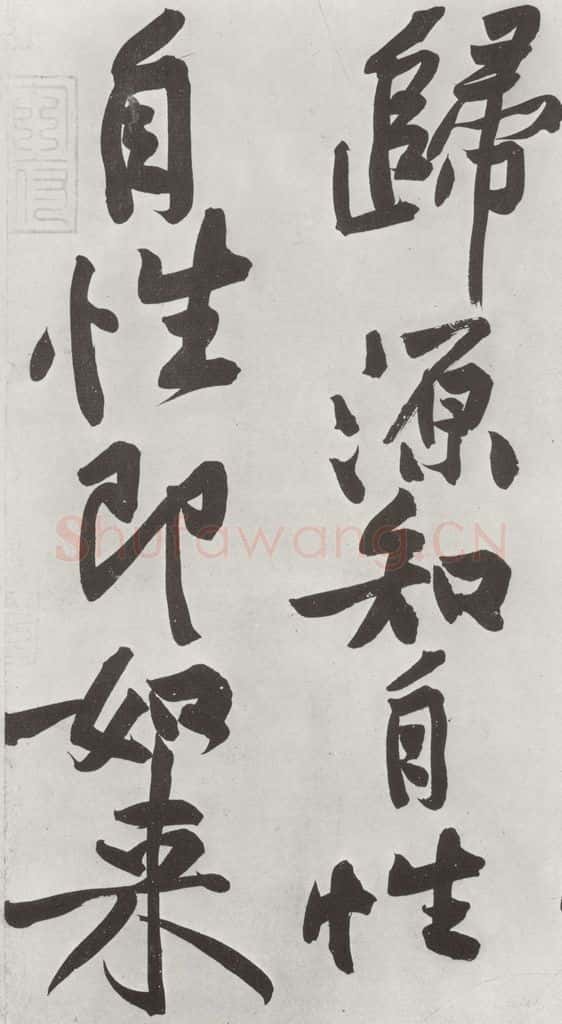 歸源知自性
自性即如来
Shufawang.CN